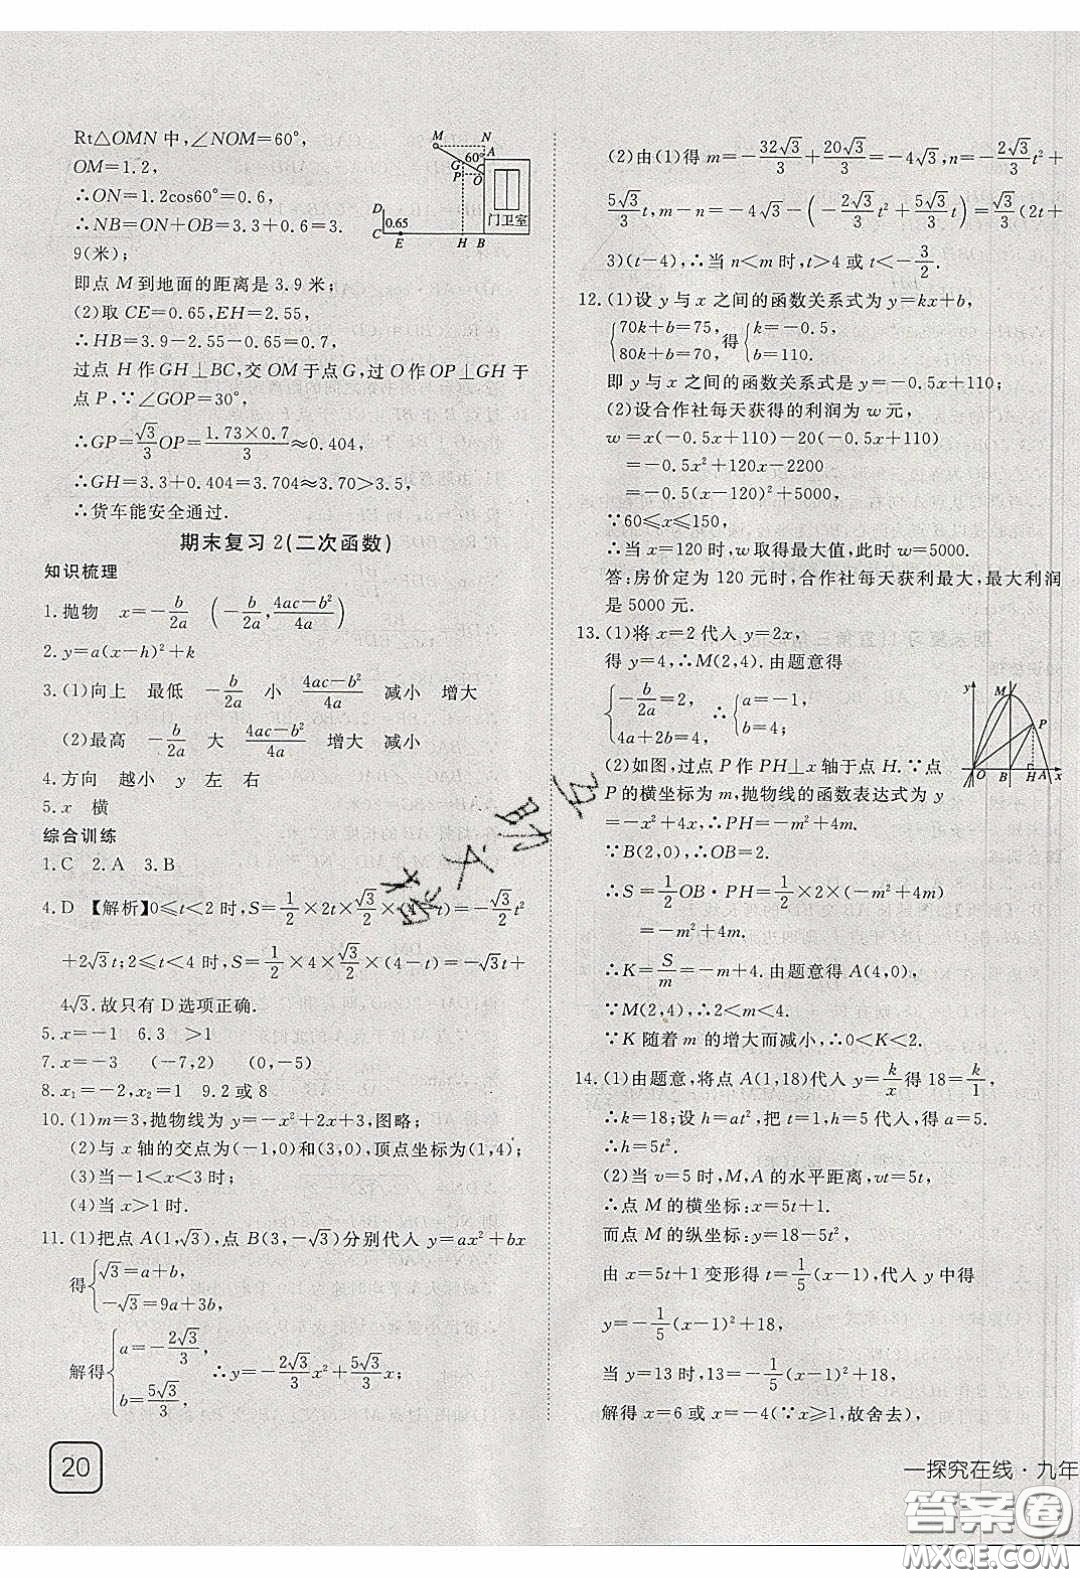 Rt△OMN 中,∠NOM=60°,
OM=1.2,
∴ON=1.2cos60°=0.6,
∴NB=ON+OB=3.3+0.6=3.
9(米);
即点 M 到地面的距离是 3.9 米;
(2)取 CE=0.65,EH=2.55,
∴HB=3.9-2.55-0.65=0.7,
过点 H 作 GH⊥BC,交 OM 于点 G,过 O 作 OP⊥GH 于
点 P,∵∠GOP=30°,
∴GP=√3/3 OP=(1.73×0.7)/3≈0.404,
∴GH=3.3+0.404=3.704≈3.70>3.5,
∴货车能安全通过.
M N A 60° G P O D 0.65 门卫室 C E H B
期末复习 2(二次函数)
知识梳理
1.抛物 x=-b/2a (-b/2a, (4ac-b²)/4a)
2.y=a(x-h)²+k
3.(1)向上 最低 -b/2a (4ac-b²)/4a 减小 增大
(2)最高 -b/2a 大 (4ac-b²)/4a 增大 减小
4.方向 越小 y 左 右
5.x 横
综合训练
1.C 2.A 3.B
4.D 【解析】0≤t<2 时,S=1/2×2t×√3/2×(4-t)=-√3/2 t²
+2√3t;2≤t<4 时,S=1/2×4×√3/2×(4-t)=-√3t+
4√3.故只有 D 选项正确.
5.x=-1 6.3 >1
7.x=-3 (-7,2) (0,-5)
8.x₁=-2,x₂=1 9.2 或 8
10.(1)m=3,抛物线为 y=-x²+2x+3,图略;
(2)与 x 轴的交点为(-1,0)和(3,0),顶点坐标为(1,4);
(3)当-1<x<3 时;
(4)当 x>1 时.
11.(1)把点 A(1,√3),点 B(3,-√3)分别代入 y=ax²+bx
得{√3=a+b,
-√3=9a+3b,
解得{a=-2√3/3,
b=5√3/3, ∴y=-2√3/3 x²+5√3/3 x;
(2)由(1)得 m=-32√3/3+20√3/3=-4√3,n=-2√3/3 t²+
5√3/3 t,m-n=-4√3-(-2√3/3 t²+5√3/3 t)=√3/3(2t+
3)(t-4),∴当 n<m 时,t>4 或 t<-3/2.
12.(1)设 y 与 x 之间的函数关系式为 y=kx+b,
{70k+b=75,
80k+b=70, 得{k=-0.5,
b=110.
即 y 与 x 之间的函数关系式是 y=-0.5x+110;
(2)设合作社每天获得的利润为 w 元,
w=x(-0.5x+110)-20(-0.5x+110)
=-0.5x²+120x-2200
=-0.5(x-120)²+5000,
∵60≤x≤150,
∴当 x=120 时,w 取得最大值,此时 w=5000.
答:房价定为 120 元时,合作社每天获利最大,最大利润
是 5000 元.
13.(1)将 x=2 代入 y=2x,
得 y=4,∴M(2,4).由题意得
{-b/2a=2,
4a+2b=4, ∴{a=-1,
b=4;
(2)如图,过点 P 作 PH⊥x 轴于点 H.∵点
P 的横坐标为 m,抛物线的函数表达式为 y
=-x²+4x,∴PH=-m²+4m.
∵B(2,0),∴OB=2.
∴S=1/2 OB·PH=1/2×2×(-m²+4m)
=-m²+4m.
∴K=S/m=-m+4.由题意得 A(4,0),
∵M(2,4),∴2<m<4.
∵K 随着 m 的增大而减小,∴0<K<2.
y M P O B H A x
14.(1)由题意,将点 A(1,18)代入 y=k/x 得 18=k/1,
∴k=18;设 h=at²,把 t=1,h=5 代入,得 a=5.
∴h=5t².
(2)当 v=5 时,M,A 的水平距离,vt=5t,
∴点 M 的横坐标:x=5t+1,
而点 M 的纵坐标:y=18-5t²,
由 x=5t+1 变形得 t=1/5(x-1),代入 y 中得
y=-1/5(x-1)²+18,
当 y=13 时,13=-1/5(x-1)²+18,
解得 x=6 或 x=-4(∵x≥1,故舍去),
20
一探究在线·九年
答案圈
MXQE.COM